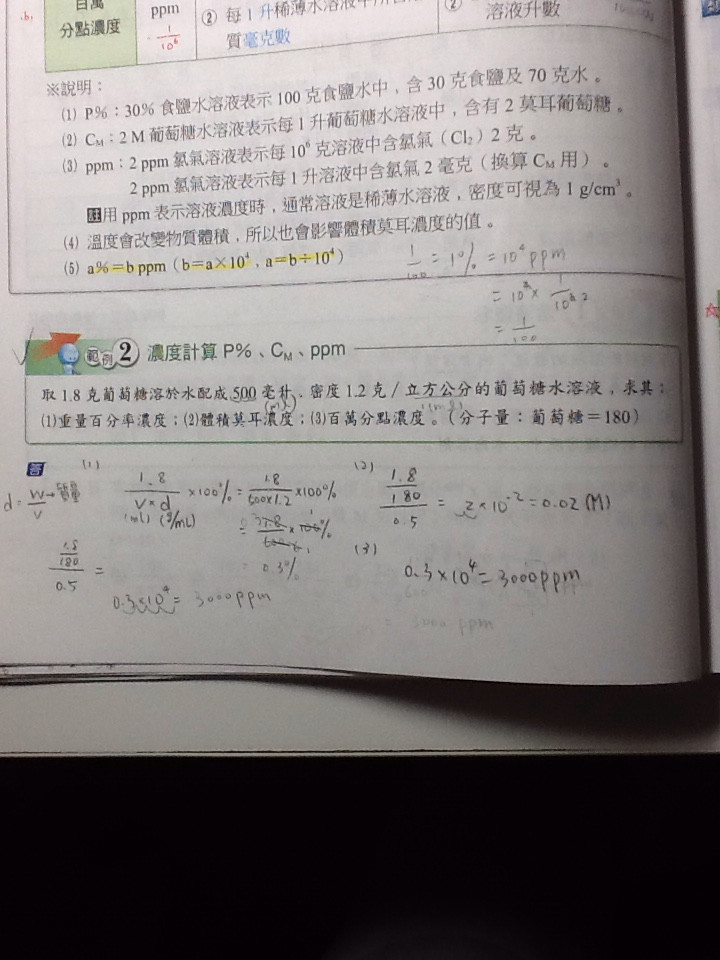 百萬
分點濃度
ppm
1/10⁶
② 每1升稀薄水溶液中所含溶
質毫克數
②
溶液升數
※說明：
(1) P%：30% 食鹽水溶液表示 100 克食鹽水中，含 30 克食鹽及 70 克水。
(2) CM：2 M 葡萄糖水溶液表示每 1 升葡萄糖水溶液中，含有 2 莫耳葡萄糖。
(3) ppm：2 ppm 氯氣溶液表示每 10⁶ 克溶液中含氯氣（Cl₂）2 克。
2 ppm 氯氣溶液表示每 1 升溶液中含氯氣 2 毫克（換算 CM 用）。
註用 ppm 表示溶液濃度時，通常溶液是稀薄水溶液，密度可視為 1 g/cm³。
(4) 溫度會改變物質體積，所以也會影響體積莫耳濃度的值。
(5) a%＝b ppm（b＝a×10⁴，a＝b÷10⁴）
1/100 = 1% = 10⁴ ppm
= 1/100
範例 2 濃度計算 P%、CM、ppm
取 1.8 克葡萄糖溶於水配成 500 毫升、密度 1.2 克／立方公分的葡萄糖水溶液，求其：
(mL)
(1)重量百分率濃度；(2)體積莫耳濃度；(3)百萬分點濃度。（分子量：葡萄糖＝180）
答
(1)
d = w/v → 質量
1.8/(v×d) ×100% = 1.8/(500×1.2) ×100%
(mL) (g/mL)
= 0.3%
(1.8/180)/0.5 =
0.3×10⁴ = 3000ppm
(2)
(1.8/180)/0.5 = 2×10⁻² = 0.02 (M)
(3)
0.3×10⁴ = 3000ppm